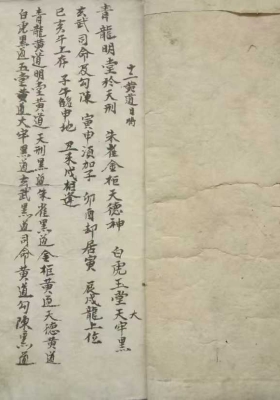 十二黄道日時
青龍明堂於天刑 朱雀金柜天德神 白虎玉堂天牢黑
大
玄武司命及勾陳 寅申須加子 卯酉却居寅 辰戌龍上位
巳亥午上存 子午臨申地 丑未戌相逢
青龍黄道明堂黄道天刑黑道朱雀黑道金柜黄道天德黄道
白虎黑道玉堂黄道大牢黑道玄武黑道司命黄道勾陳黑道